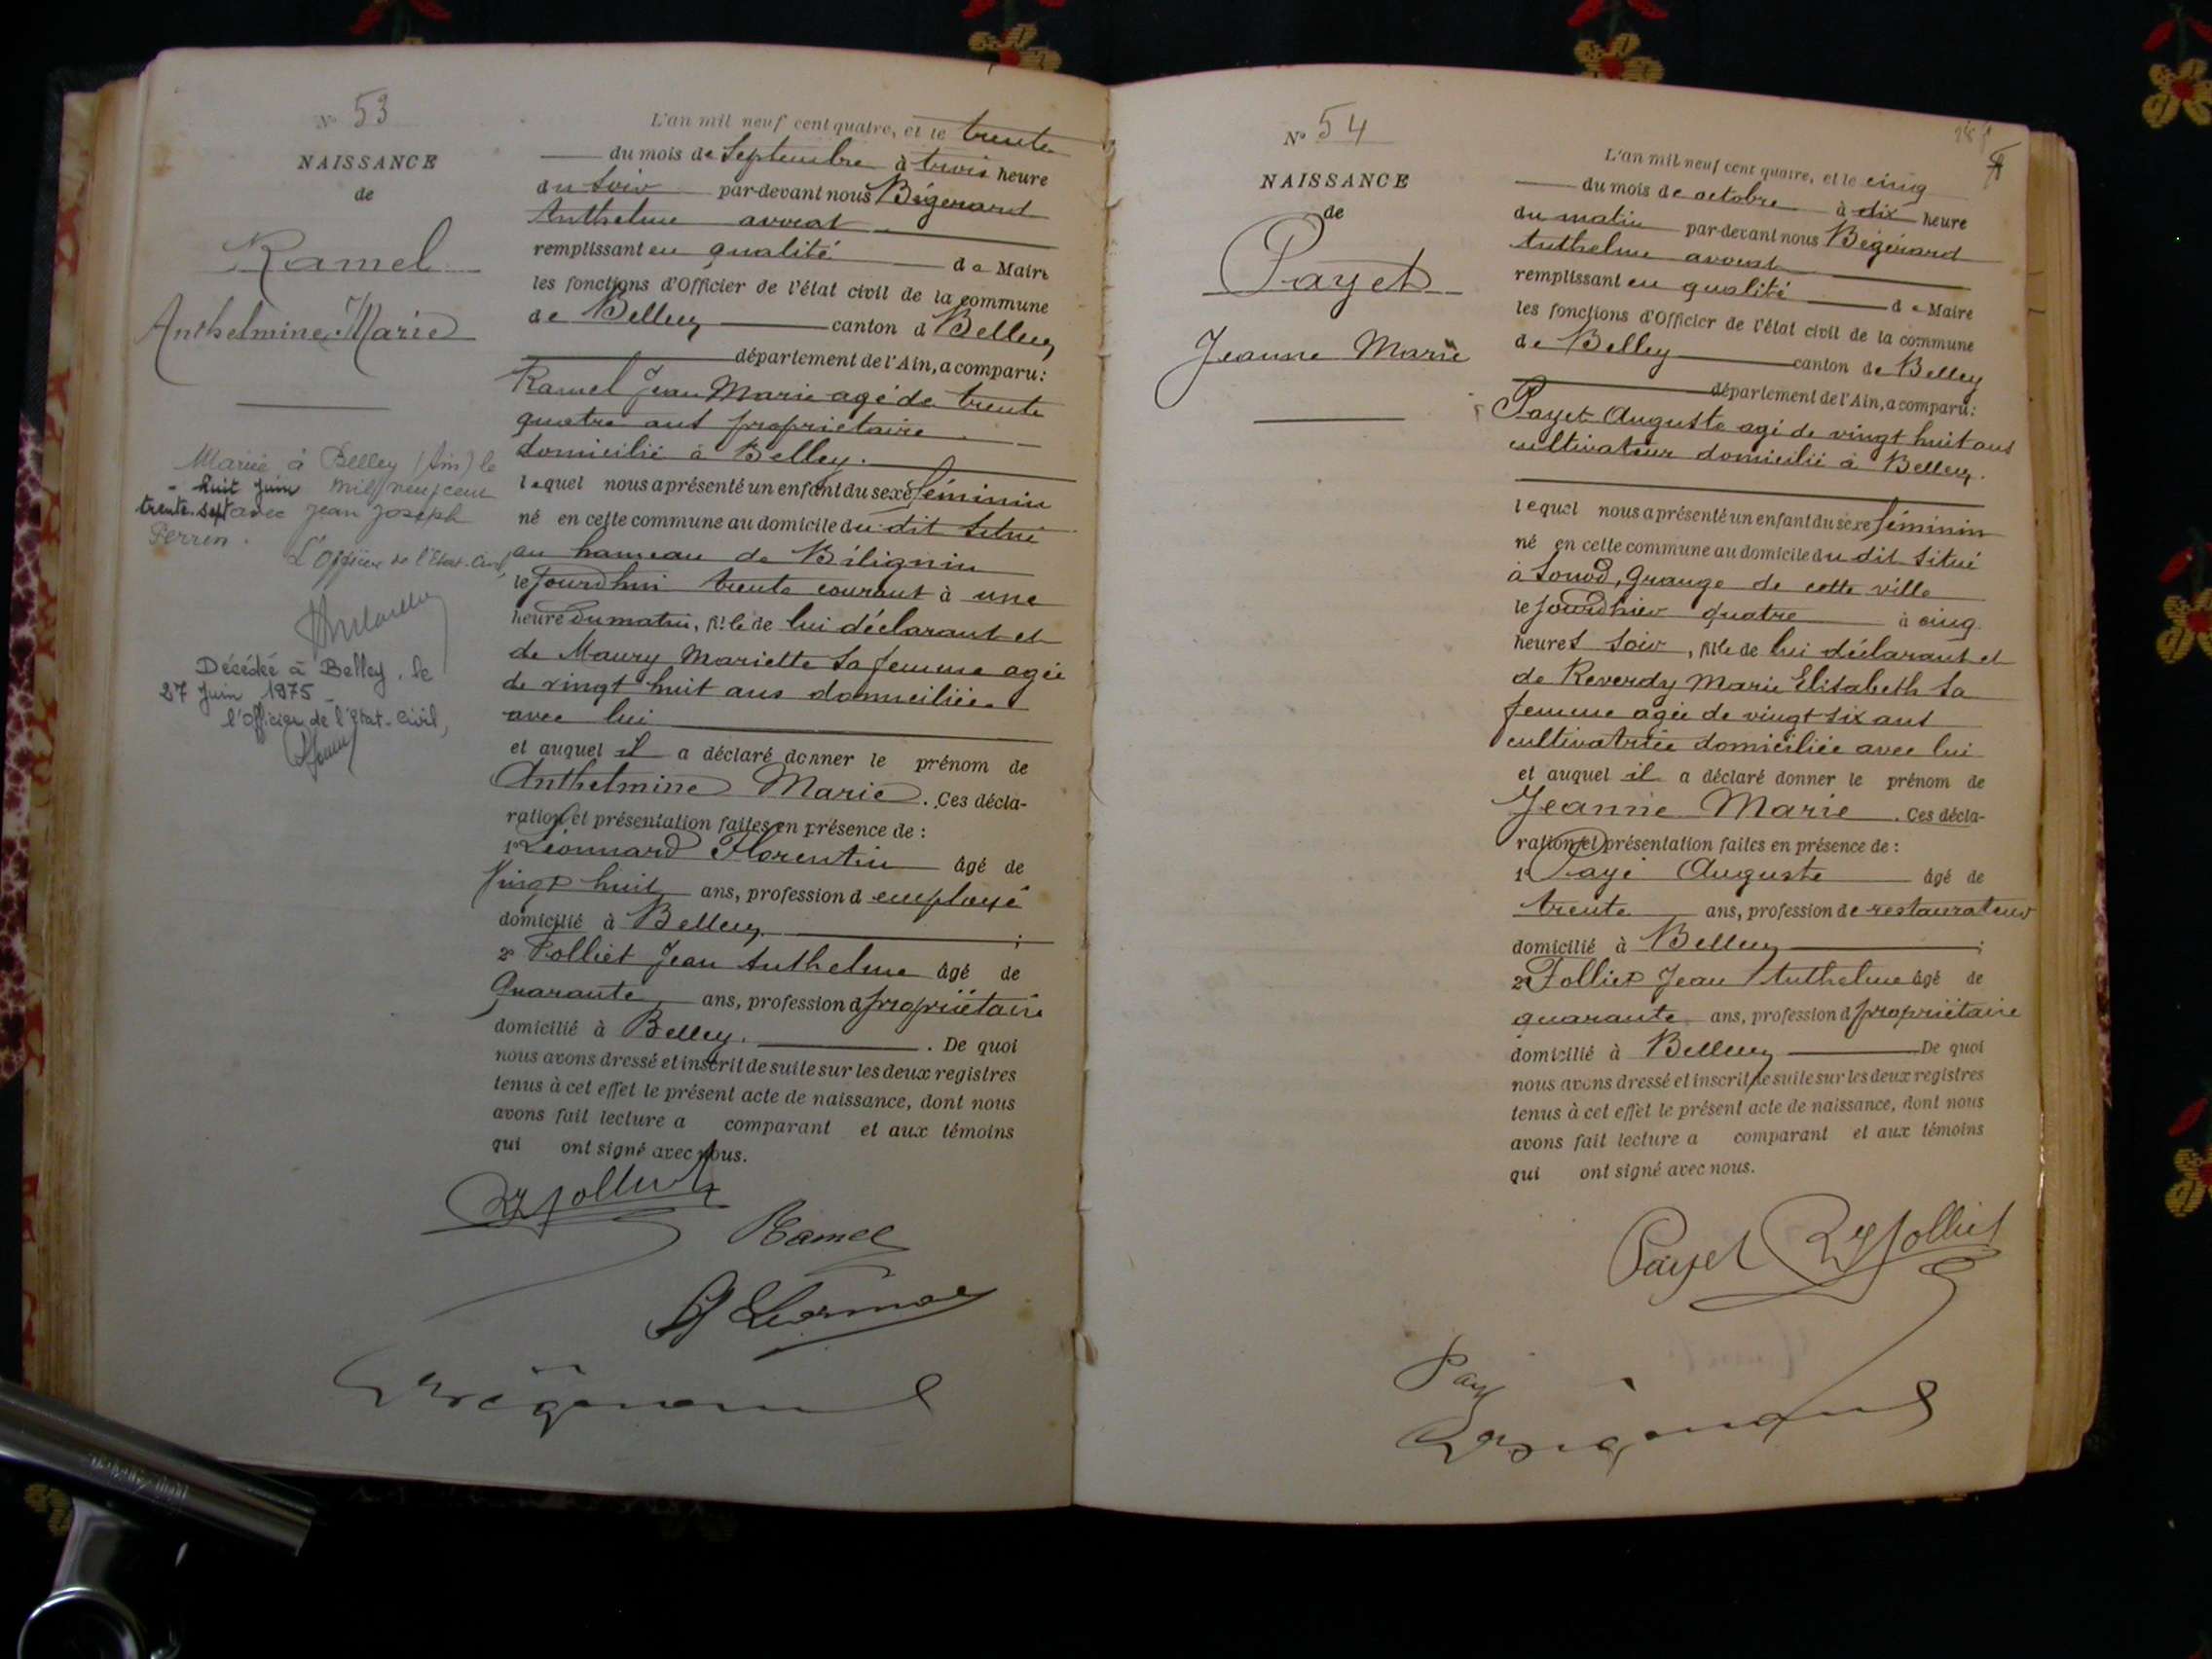 N° 53
NAISSANCE
de
Ramel
Anthelmine Marie
Mariée à Belley (Ain) le
huit juin mil neuf cent
trente sept avec Jean Joseph
Perrin.
L'Officier de l'Etat-Civil,
Décédée à Belley, le
27 Juin 1975
l'Officier de l'Etat-Civil,
L'an mil neuf cent quatre, et le trente
du mois de Septembre à trois heure
du soir par-devant nous Bégérard
Anthelme avocat
remplissant en qualité de Maire
les fonctions d'Officier de l'état civil de la commune
de Belley canton d Belley
département de l'Ain, a comparu:
Ramel Jean Marie agé de trente
quatre ans propriétaire
domicilié à Belley.
lequel nous a présenté un enfant du sexe féminin
né en cette commune au domicile du dit situé
au hameau de Bilignin
le jourd'hui trente courant à une
heure du matin, fille de lui déclarant et
de Maury Mariette sa femme agée
de vingt huit ans domiciliée
avec lui
et auquel il a déclaré donner le prénom de
Anthelmine Marie. Ces décla-
ration et présentation faites en présence de :
1° Léonnard Florentin âgé de
Vingt huit ans, profession d employé
domicilié à Belley ;
2° Folliet Jean Anthelme âgé de
Quarante ans, profession d propriétaire
domicilié à Belley. De quoi
nous avons dressé et inscrit de suite sur les deux registres
tenus à cet effet le présent acte de naissance, dont nous
avons fait lecture a comparant et aux témoins
qui ont signé avec nous.
Folliet
Ramel
Bégérard
N° 54
NAISSANCE
de
Payet
Jeanne Marie
L'an mil neuf cent quatre, et le cinq
du mois de octobre à dix heure
du matin par-devant nous Bégérard
Anthelme avocat
remplissant en qualité de Maire
les fonctions d'Officier de l'état civil de la commune
de Belley canton de Belley
département de l'Ain, a comparu:
Payet Auguste agé de vingt huit ans
cultivateur domicilié à Belley.
lequel nous a présenté un enfant du sexe féminin
né en cette commune au domicile du dit situé
à Sonod, Grange de cette ville
le jourd'hier quatre à cinq
heures soir, fille de lui déclarant et
de Reverdy Marie Elisabeth sa
femme agée de vingt six ans
cultivatrice domiciliée avec lui
et auquel il a déclaré donner le prénom de
Jeanne Marie. Ces décla-
ration et présentation faites en présence de :
1° Payé Auguste âgé de
trente ans, profession de restaurateur
domicilié à Belley ;
2° Folliet Jean Anthelme âgé de
quarante ans, profession d propriétaire
domicilié à Belley De quoi
nous avons dressé et inscrit de suite sur les deux registres
tenus à cet effet le présent acte de naissance, dont nous
avons fait lecture a comparant et aux témoins
qui ont signé avec nous.
Payet Folliet
Bégérard